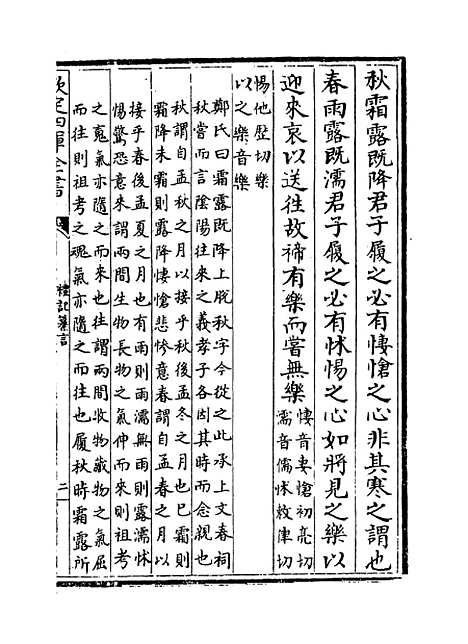 秋霜露既降君子履之必有悽愴之心非其寒之謂也
春雨露既濡君子履之必有怵惕之心如將見之樂以
迎來哀以送往故禘有樂而嘗無樂悽音妻愴初亮切
濡音儒怵敕律切
惕他歴切樂
以之樂音樂
鄭氏曰霜露既降上脱秋字今從之此承上文春祠
秋嘗而言陰陽往來之義孝子各因其時而念親也
秋謂自孟秋之月以接乎秋後孟冬之月也已霜則
霜降未霜則露降悽愴悲慘意春謂自孟春之月以
接乎春後孟夏之月也有雨則雨濡無雨則露濡怵
惕驚恐意來謂兩間生物長物之氣伸而來則祖考
之䰟氣亦隨之而來也往謂兩間收物藏物之氣屈
而往則祖考之魂氣亦隨之而往也履秋時霜露所
欽定四庫全書
禮記纂言
二